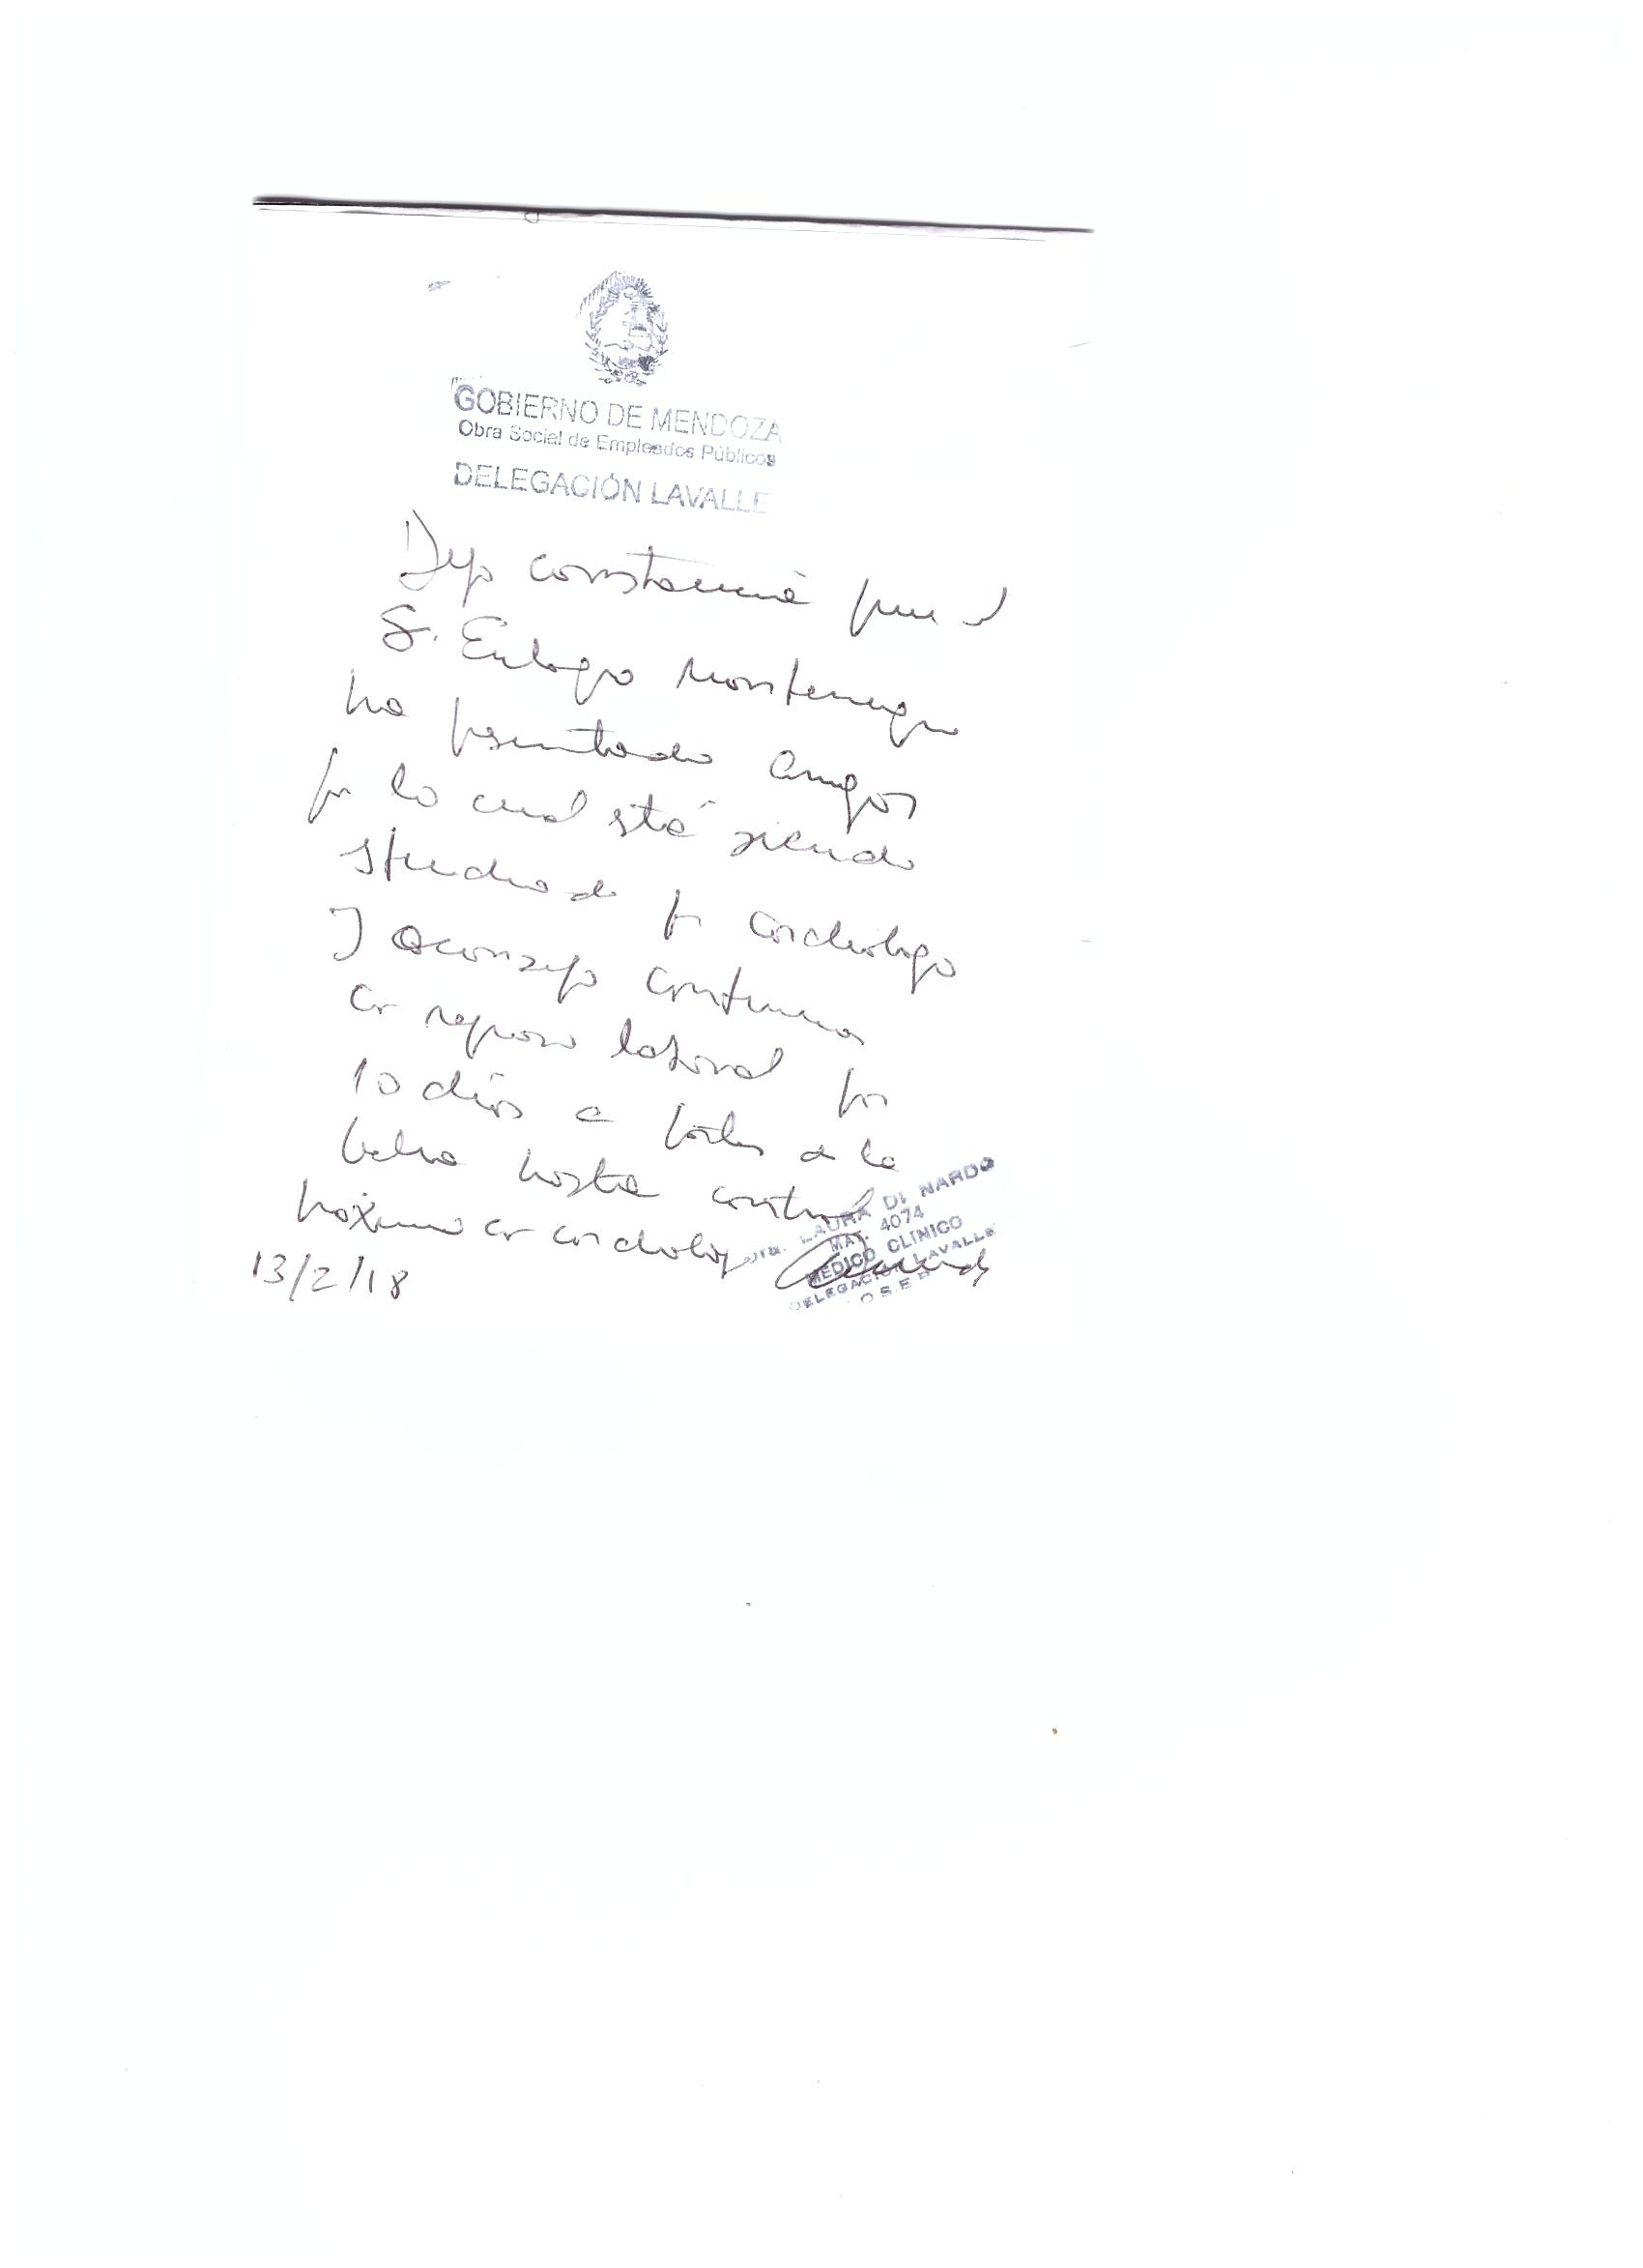 GOBIERNO DE MENDOZA
Obra Social de Empleados Públicos
DELEGACIÓN LAVALLE
Dejo constancia que el
Sr. Eulogio Montenegro
ha presentado angor
por lo cual está siendo
estudiado por cardiologo
y aconsejo continuar
con reposo laboral por
10 días a partir de la
fecha hasta control
próximo con cardiolog
13/2/18
Dra. LAURA DI NARDO
MAT. 4074
MEDICO CLINICO
DELEGACION LAVALLE
OSEP